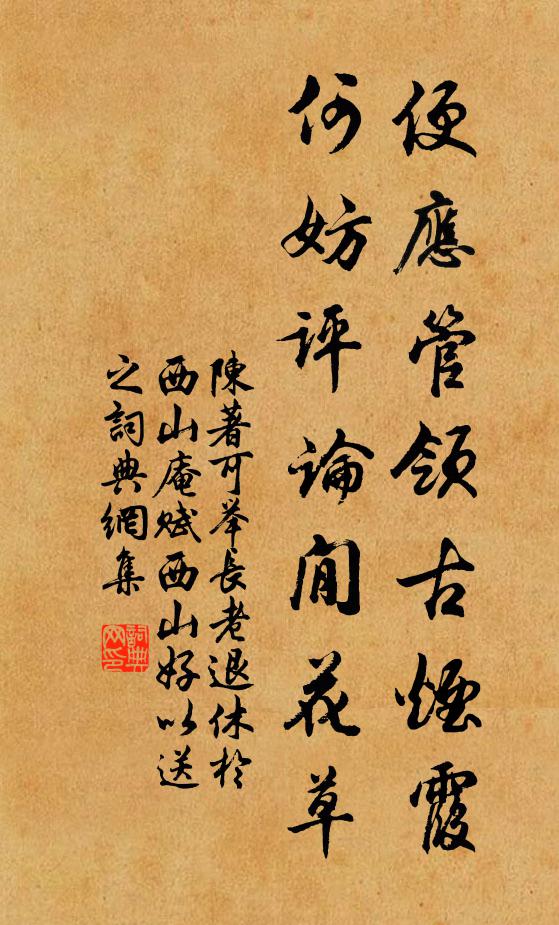 便應管領古煙霞
何妨評論閒花草
陳著可舉長老退休於
西山庵賦西山好以送
之詞典網集
詞典
网印